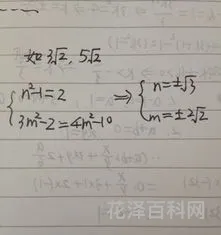 如 3√2, 5√2
{ n²-1=2 ⇒ { n=±√3
{ 3m²-2=4m²-10 ⇒ { m=±2√2
花泽百科网